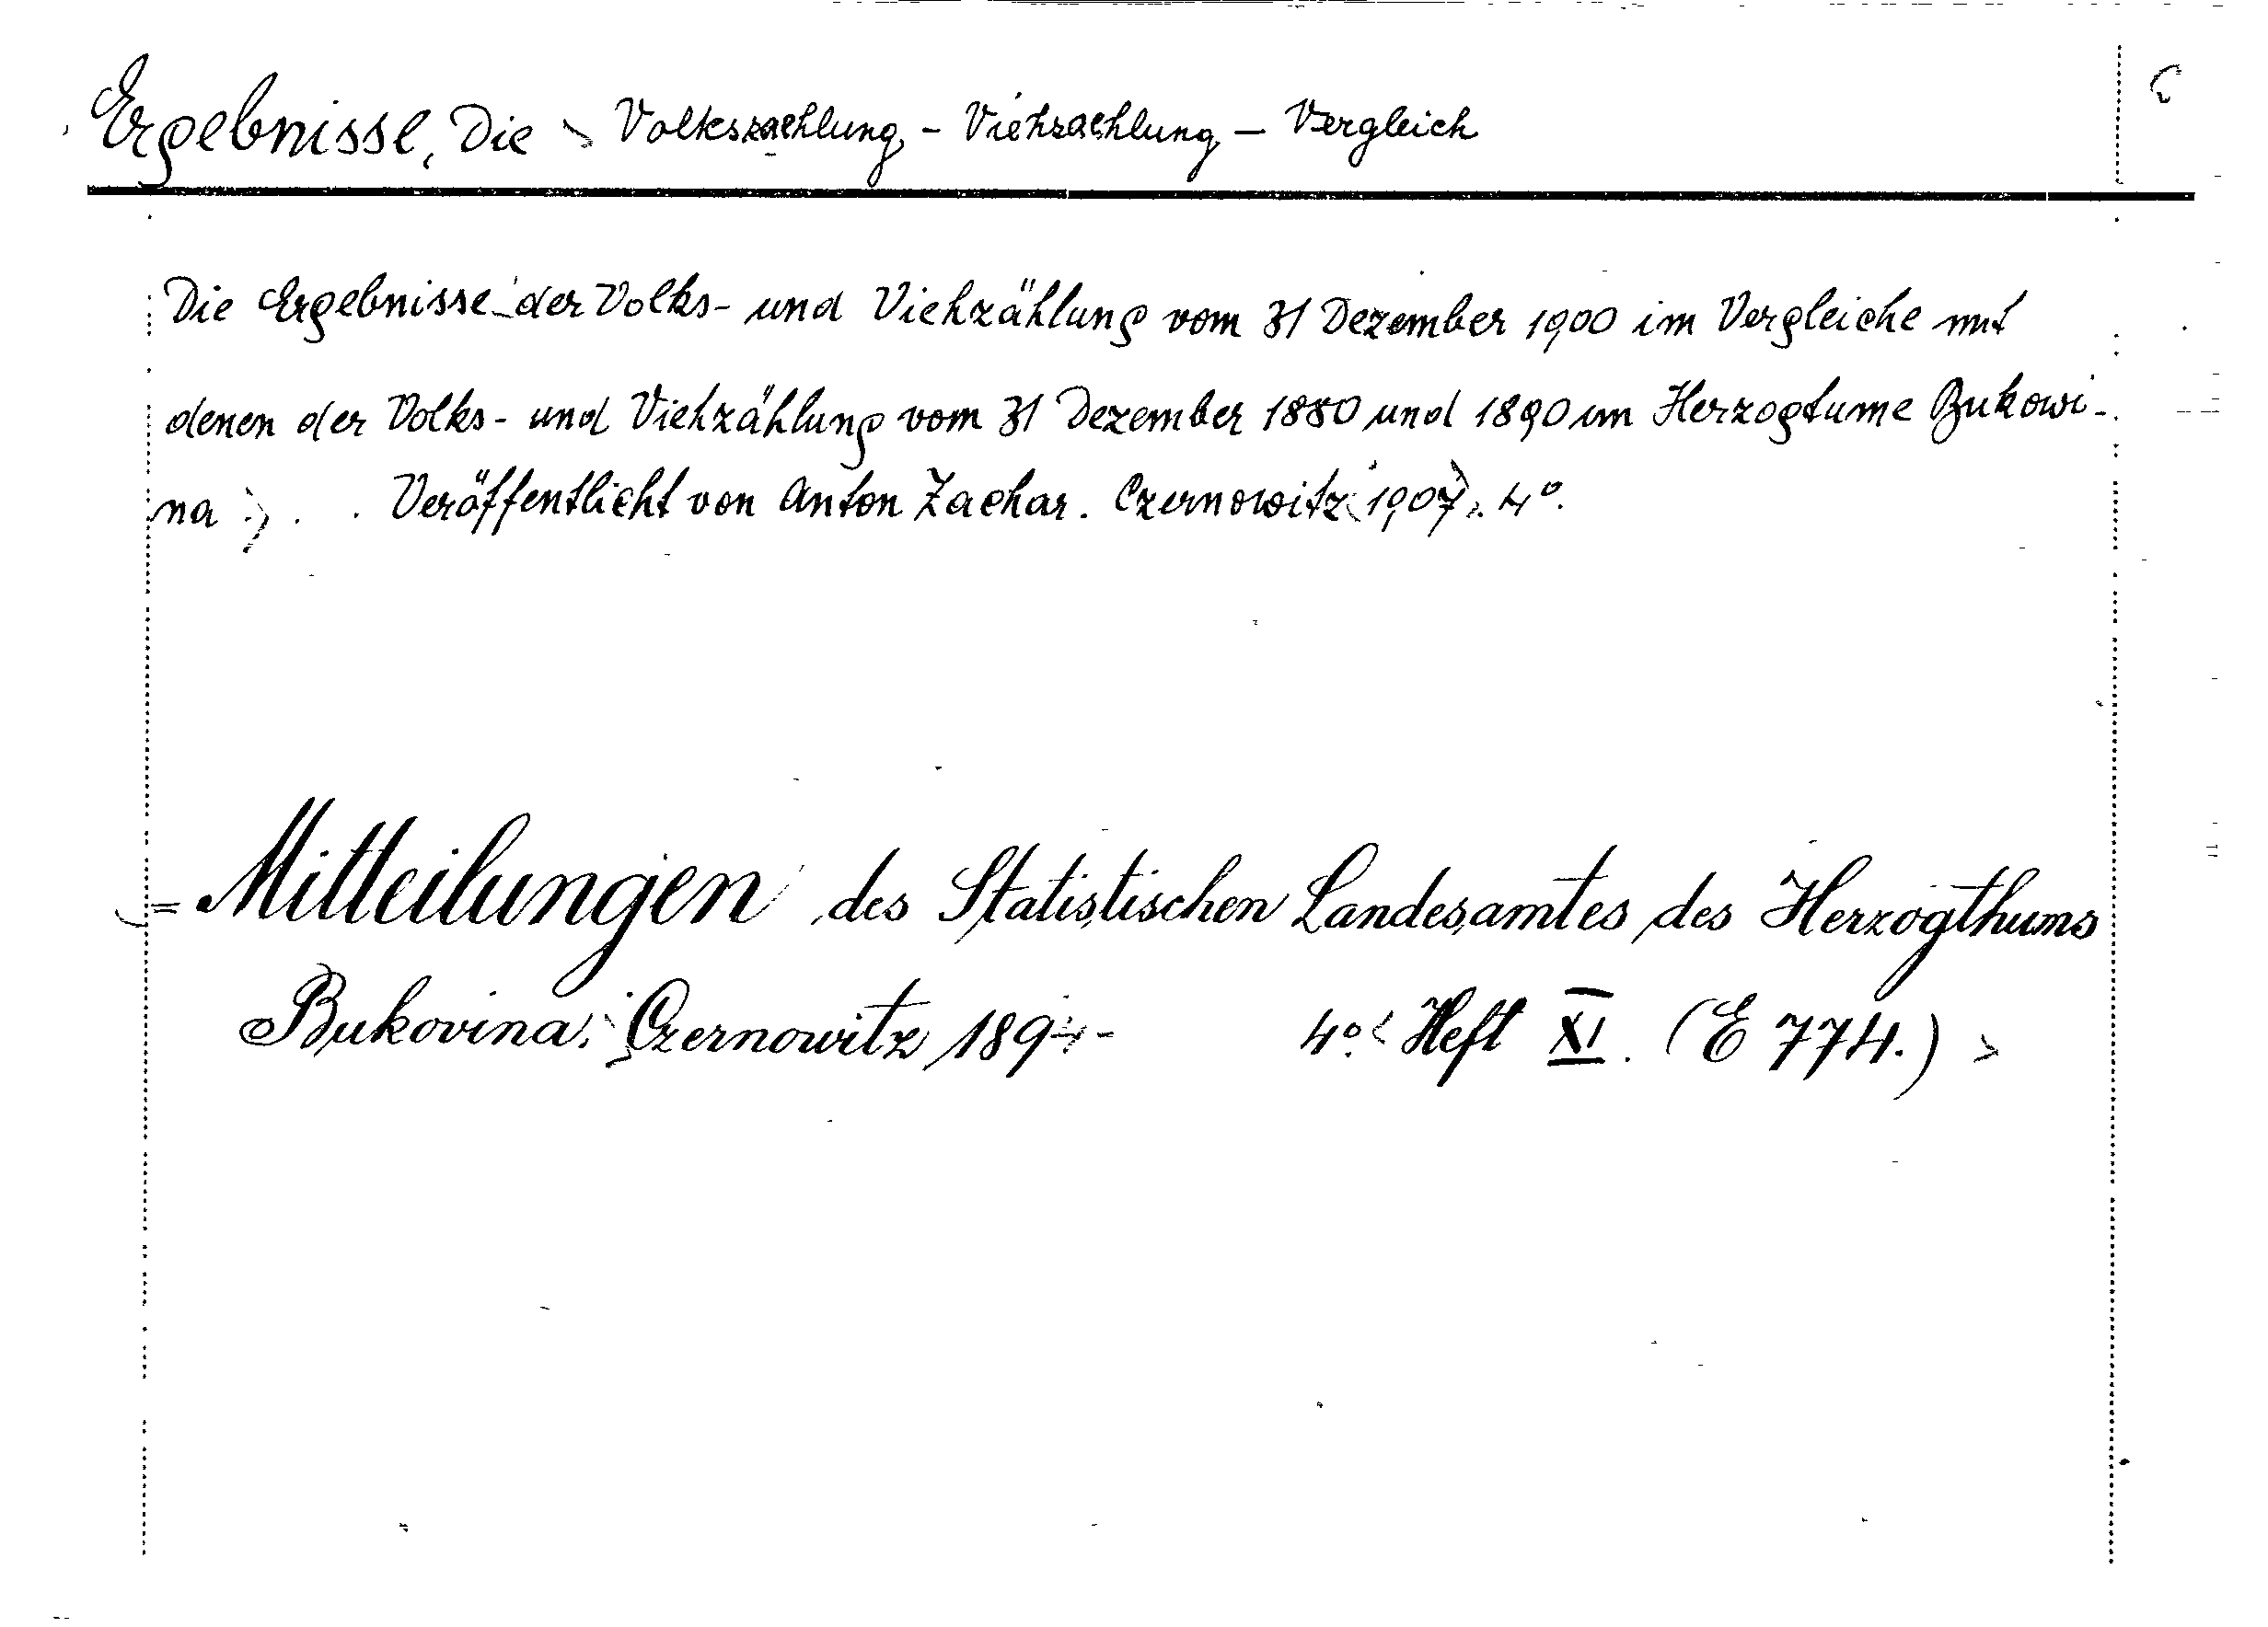 Ergebnisse, Die Volkszaehlung - Viehzaehlung - Vergleich
Die Ergebnisse der Volks- und Viehzählung vom 31 Dezember 1900 im Vergleiche mit
denen der Volks- und Viehzählung vom 31 Dezember 1880 und 1890 im Herzogtume Bukowi-
na . . Veröffentlicht von Anton Zachar. Czernowitz 1907. 4°.
= Mitteilungen des Statistischen Landesamtes des Herzogthums
Bukovina. Czernowitz 189 - 4°. Heft XI. (E 774.)